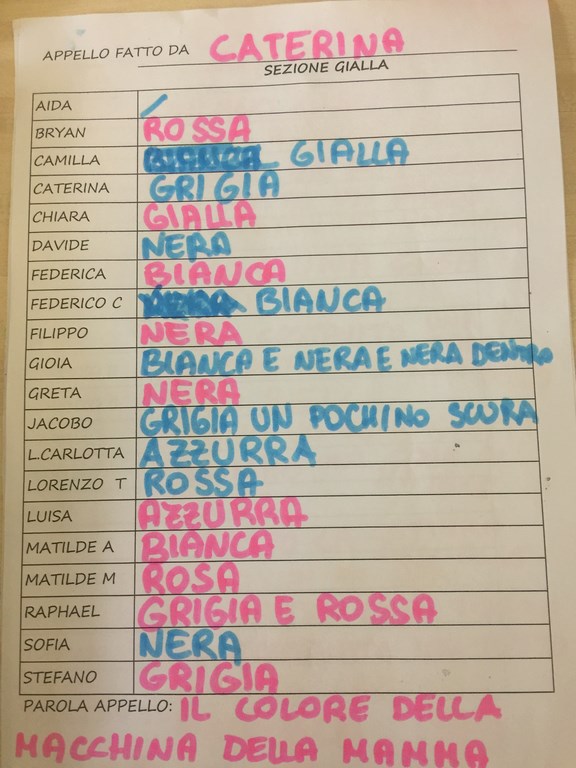 APPELLO FATTO DA CATERINA
SEZIONE GIALLA
AIDA /
BRYAN ROSSA
CAMILLA GIALLA
CATERINA GRIGIA
CHIARA GIALLA
DAVIDE NERA
FEDERICA BIANCA
FEDERICO C BIANCA
FILIPPO NERA
GIOIA BIANCA E NERA E NERA DENTRO
GRETA NERA
JACOBO GRIGIA UN POCHINO SCURA
L.CARLOTTA AZZURRA
LORENZO T ROSSA
LUISA AZZURRA
MATILDE A BIANCA
MATILDE M ROSA
RAPHAEL GRIGIA E ROSSA
SOFIA NERA
STEFANO GRIGIA
PAROLA APPELLO: IL COLORE DELLA
MACCHINA DELLA MAMMA